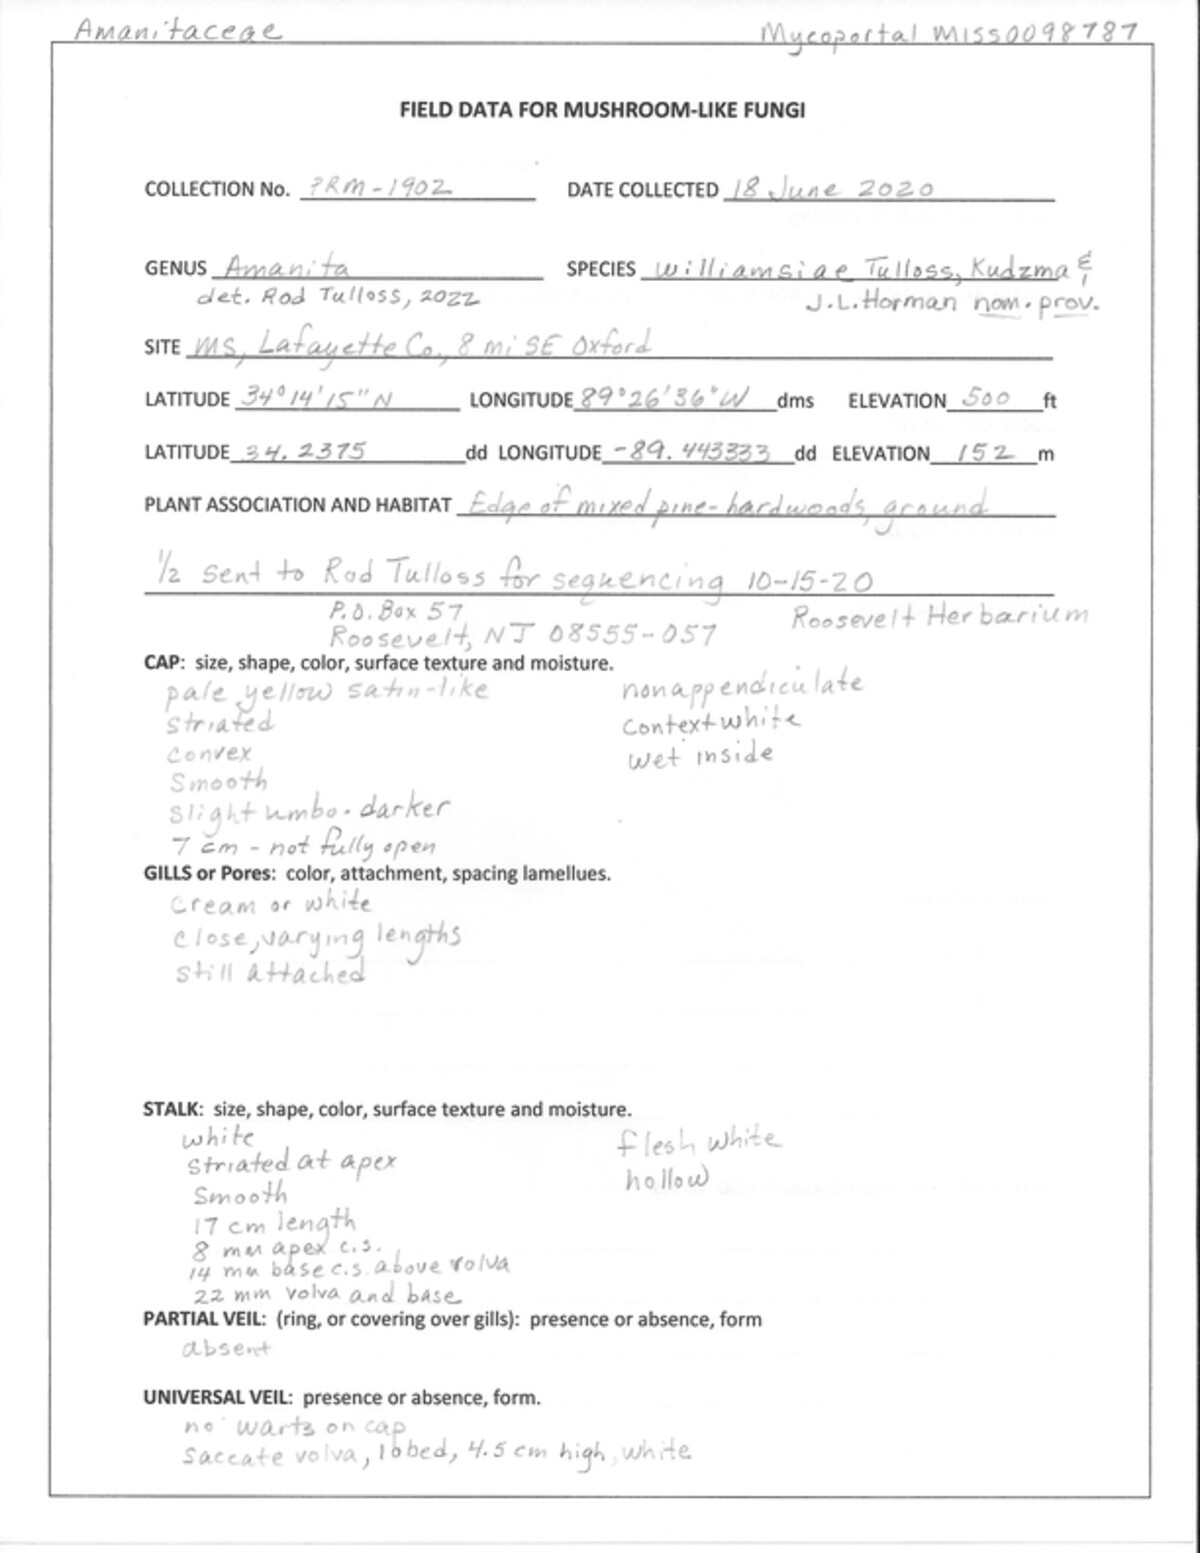 Amanitaceae Mycoportal MISS0098787
FIELD DATA FOR MUSHROOM-LIKE FUNGI
COLLECTION No. PRM-1902 DATE COLLECTED 18 June 2020
GENUS Amanita SPECIES williamsiae Tulloss, Kudzma &
det. Rod Tulloss, 2022 J.L. Horman nom. prov.
SITE MS, Lafayette Co., 8 mi SE Oxford
LATITUDE 34°14'15"N LONGITUDE 89°26'36"W dms ELEVATION 500 ft
LATITUDE 34.2375 dd LONGITUDE -89.443333 dd ELEVATION 152 m
PLANT ASSOCIATION AND HABITAT Edge of mixed pine-hardwoods, ground
1/2 sent to Rod Tulloss for sequencing 10-15-20
P.O. Box 57 Roosevelt Herbarium
Roosevelt, NJ 08555-057
CAP: size, shape, color, surface texture and moisture.
pale yellow satin-like nonappendiculate
striated context white
convex wet inside
Smooth
slight umbo - darker
7 cm - not fully open
GILLS or Pores: color, attachment, spacing lamellues.
cream or white
close, varying lengths
still attached
STALK: size, shape, color, surface texture and moisture.
white flesh white
striated at apex hollow
Smooth
17 cm length
8 mm apex c.s.
14 mm base c.s. above volva
22 mm volva and base
PARTIAL VEIL: (ring, or covering over gills): presence or absence, form
absent
UNIVERSAL VEIL: presence or absence, form.
no warts on cap
saccate volva, lobed, 4.5 cm high, white